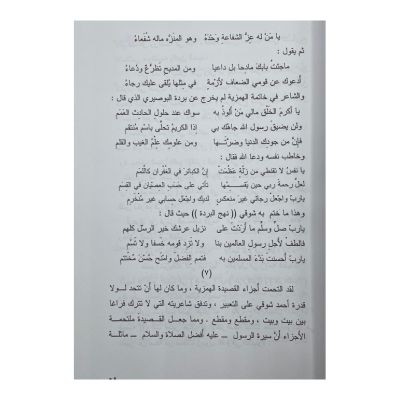 يا مَنْ له عِزُّ الشفاعة وَحْدَهُ وهو المنزه ماله شُفَعاءُ
ثم يقول :
ماجئتُ بابكَ مادحا بل داعيا ومن المديح تضَرُّعٌ ودُعاءُ
أدعوك عن قومي الضعاف لأزمةٍ في مِثلها يُلْقى عليك رجاءُ
والشاعر في خاتمة الهمزية لم يخرج عن بردة البوصيري الذي قال :
يا أكرمَ الخَلْق مالي مَنْ ألوذُ به سواك عند حلول الحادث العَمِم
ولن يضيقَ رسول الله جاهُك بي إذا الكريمُ تحلَّى باسْم مُنتقم
فإنَّ من جودِك الدنيا وضَرَّتَها ومن علومِك عِلْمُ الغيب والقلم
وخاطب نفسه ودعا الله فقال :
يا نفسُ لا تقنطي من زلّةٍ عظُمَتْ إنَّ الكبائرَ في الغُفران كاللَّمَم
لعلَّ رحمةَ ربي حين يقسمُها تأتي على حَسَب العِصْيان في القِسَم
ياربِّ واجْعل رجائي غير منعكسٍ لديك واجْعل حسابي غير مُنْخَرم
وهذا ما ختم به شوقي (( نهج البردة )) حيث قال :
ياربِّ صلِّ وسلِّم ما أرَدْتَ على نزيل عرشك خير الرسل كلهم
فالطفْ لأجلِ رسولِ العالمين بنا ولا تزد قومه خسفا ولا تُسِم
ياربِّ أحسنتَ بَدْءَ المسلمين به فتمم الفضلَ وامْنحْ حُسْنَ مُخْتتَم
(٧)
لقد التحمت أجزاء القصيدة الهمزية ، وما كان لها أنْ تتحد لولا
قدرة أحمد شوقي على التعبير ، وتدفق شاعريته التي لا تترك فراغا
بين بيت وبيت ، ومقطع ومقطع . ومما جعل القصيدة ملتحمة
الأجزاء أنّ سيرة الرسول ــ عليه أفضل الصلاة والسلام ــ ماثلة